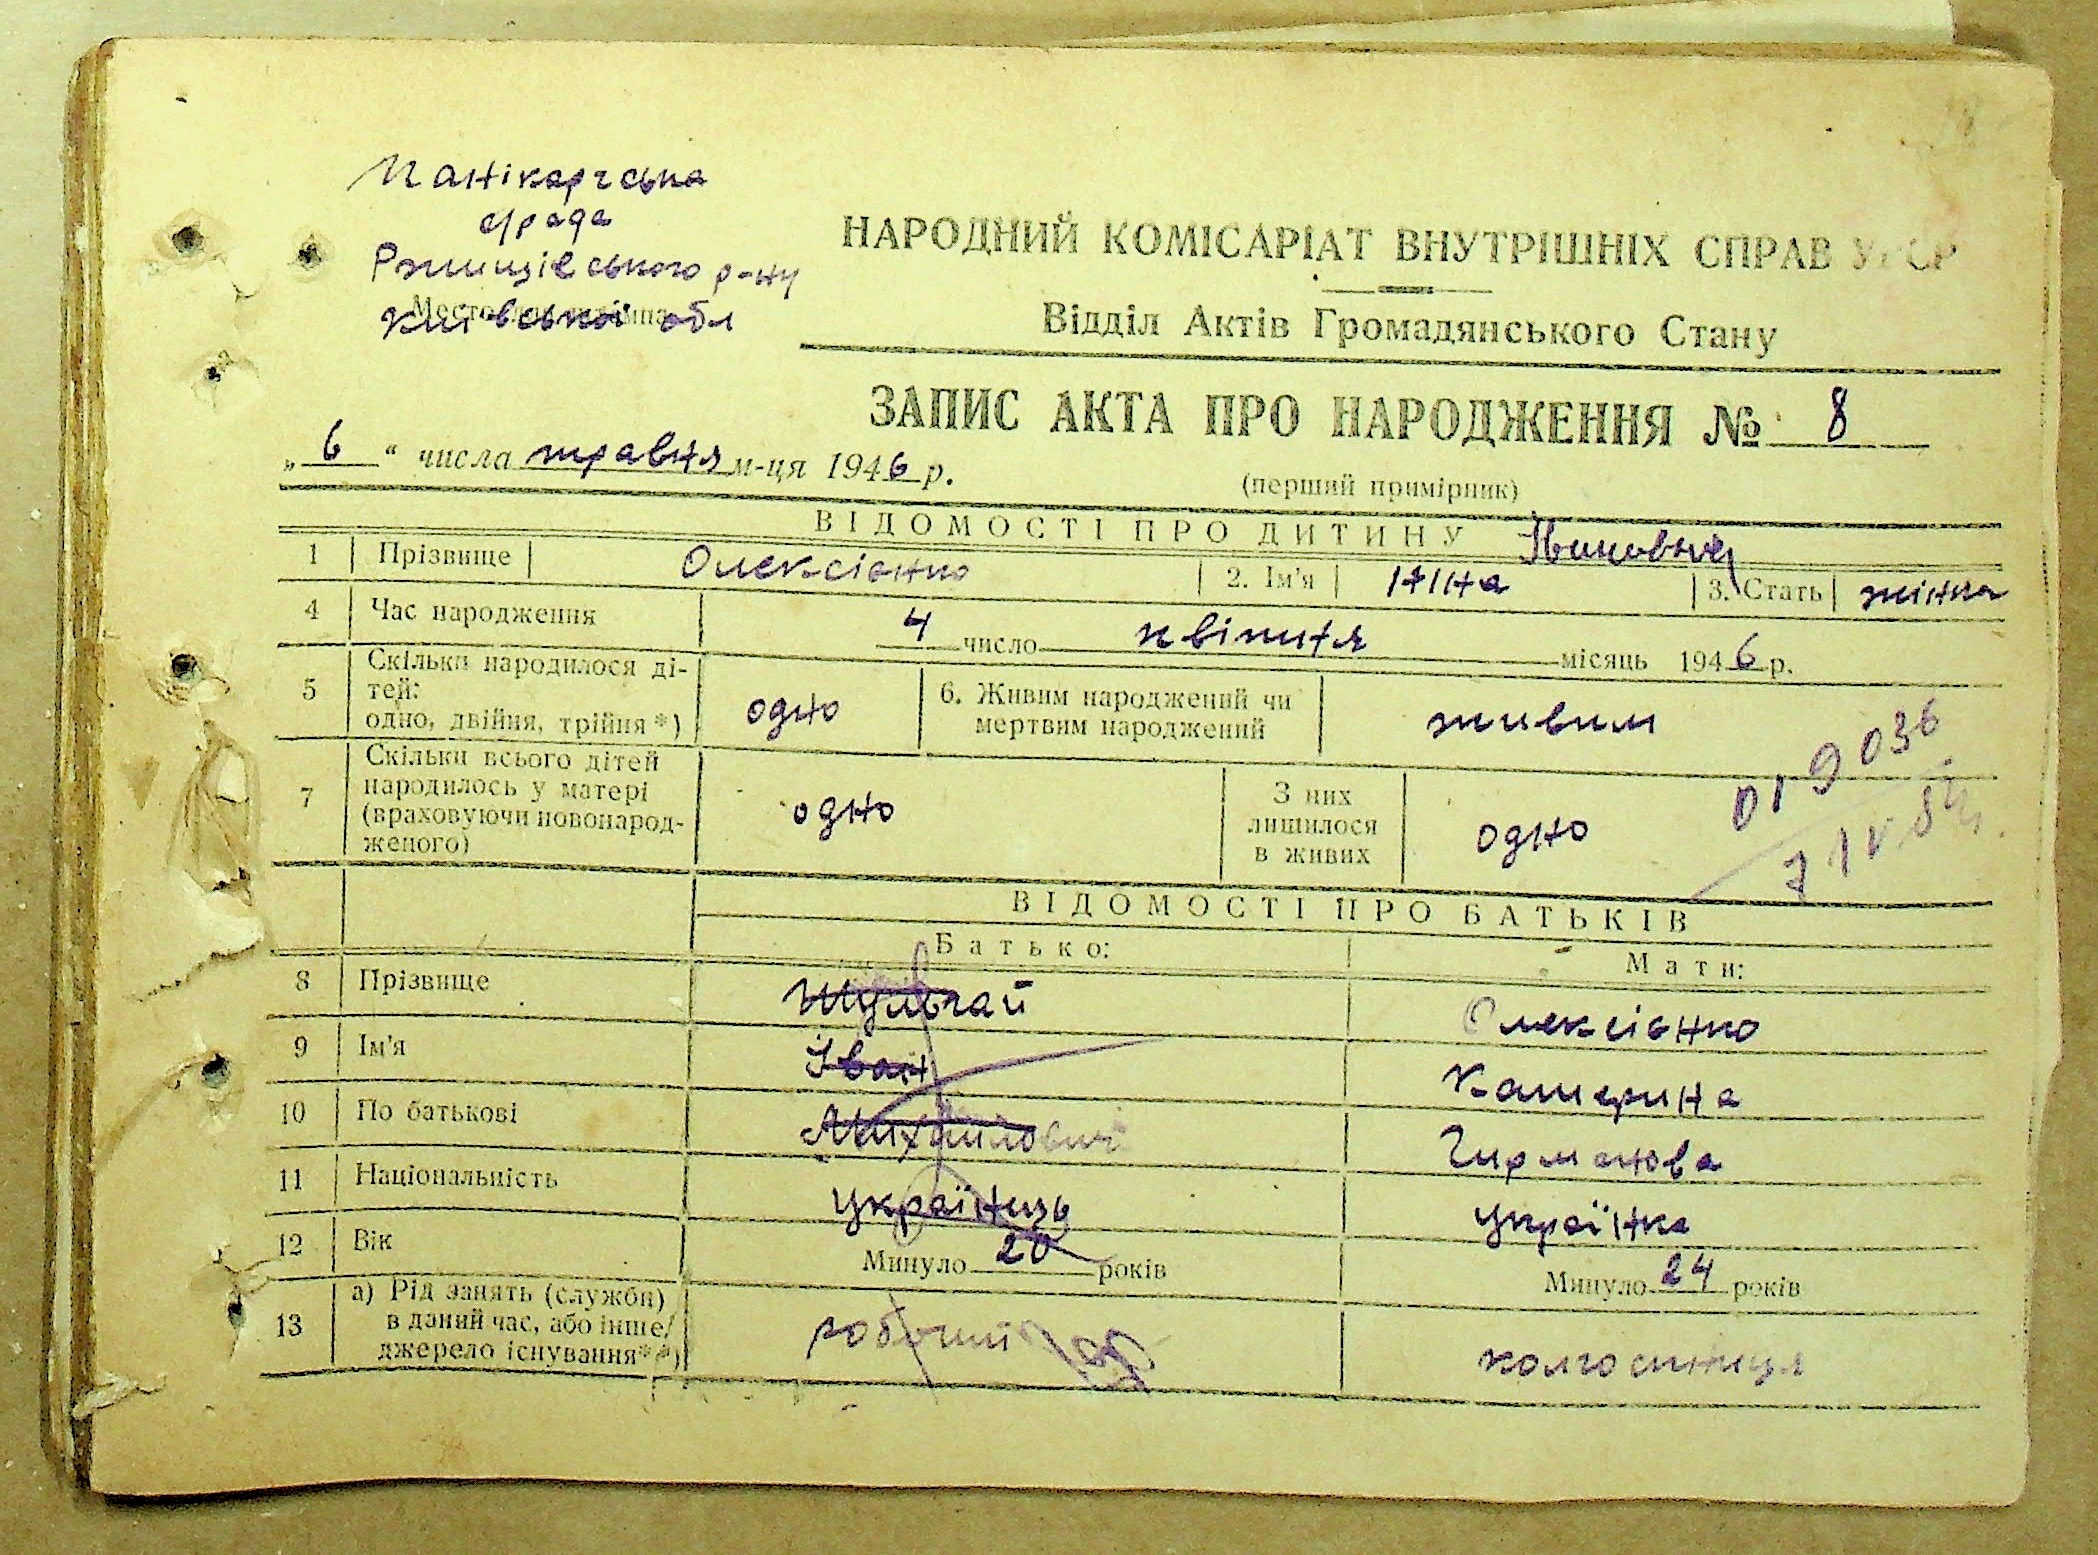 Панікарчська
с/рада
Ржищівського р-ну
Київської обл
НАРОДНИЙ КОМІСАРІАТ ВНУТРІШНІХ СПРАВ УРСР
Відділ Актів Громадянського Стану
ЗАПИС АКТА ПРО НАРОДЖЕННЯ № 8
„6“ числа травня м-ця 1946 р.
(перший примірник)
ВІДОМОСТІ ПРО ДИТИНУ
Івановна
1 Прізвище Олексієнко 2. Ім'я Ніна 3. Стать жіноча
4 Час народження 4 число квітня місяць 1946 р.
5 Скільки народилося ді-
тей:
одно, двійня, трійня*) одно 6. Живим народжений чи
мертвим народжений живим
7 Скільки всього дітей
народилось у матері
(враховуючи новонарод-
женого) одно З них
лишилося
в живих одно
019036
ВІДОМОСТІ ПРО БАТЬКІВ
Батько: Мати:
8 Прізвище Шульгай Олексієнко
9 Ім'я Іван Катерина
10 По батькові Михайлович
11 Національність українець українка
12 Вік Минуло 20 років Минуло 24 років
13 а) Рід занять (служби)
в даний час, або інше
джерело існування**) робочий колгоспниця